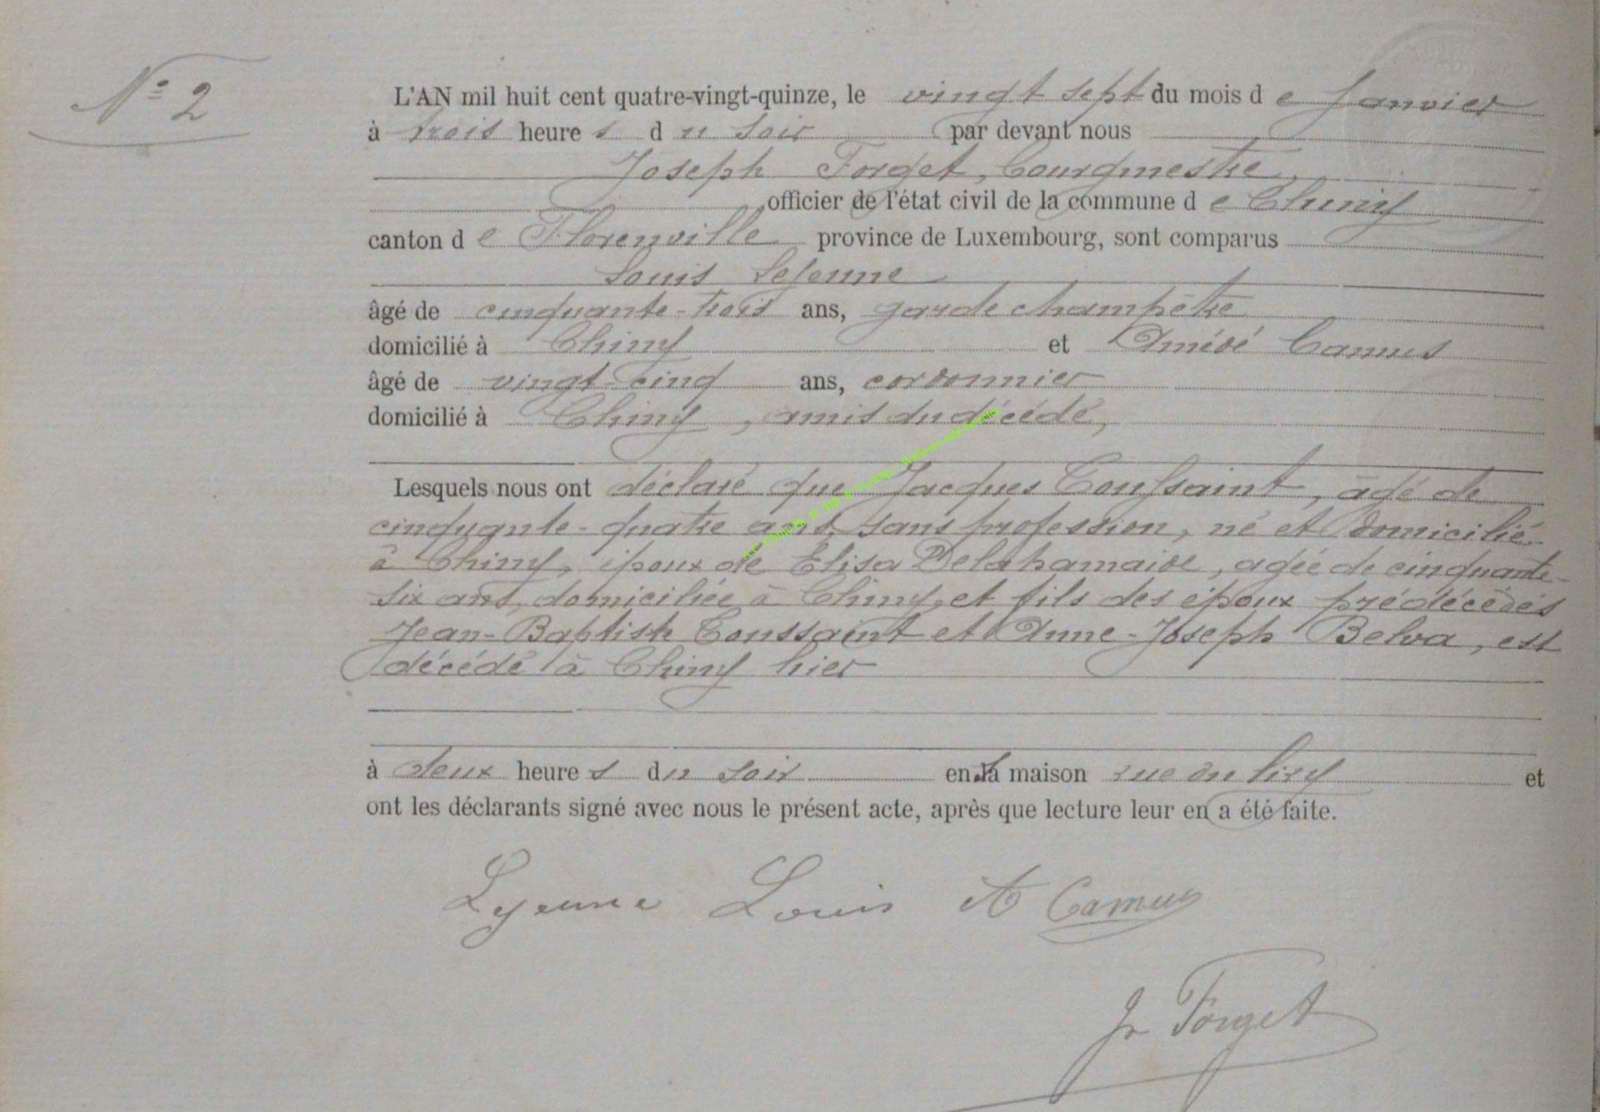 N° 2
L'AN mil huit cent quatre-vingt-quinze, le vingt sept du mois de Janvier
à trois heures du soir par devant nous
Joseph Forget, bourgmestre,
officier de l'état civil de la commune de Chiny
canton de Florenville province de Luxembourg, sont comparus
Louis Lejeune
âgé de cinquante-trois ans, garde champetre
domicilié à Chiny et Amédé Camus
âgé de vingt-cinq ans, cordonnier
domicilié à Chiny, amis du décédé,
Lesquels nous ont déclaré que Jacques Toussaint, âgé de
cinquante-quatre ans, sans profession, né et domicilié
à Chiny, époux de Elisa Delahamaide, agée de cinquante-
six ans, domiciliée à Chiny, et fils des époux prédécédés
Jean-Baptiste Toussaint et Anne-Joseph Belva, est
décédé à Chiny hier
à deux heures du soir en sa maison rue du et
ont les déclarants signé avec nous le présent acte, après que lecture leur en a été faite.
Lejeune Louis A Camus
Js Forget